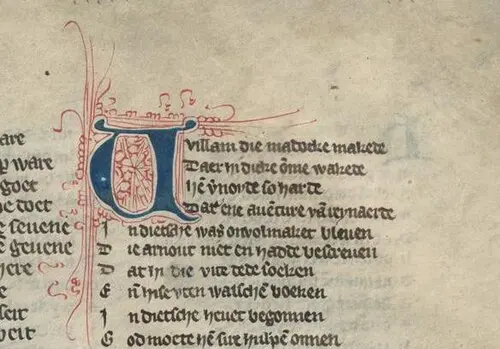 are
ware
goet
doet
seuene
geuene
here
seit
Uuillam die madocke makede
Daer hi dicke ōme wakede
Hē v'noyde so harde
Dat ene auēture vā reynaerde
In dietsche was onvolmaket bleuen
Die arnout niet en hadde bescreuen
Dat hi die vite dede soeken
Eñ hise vten walschē boeken
In dietsche heuet begonnen
God moete hē sire hulpen onnen